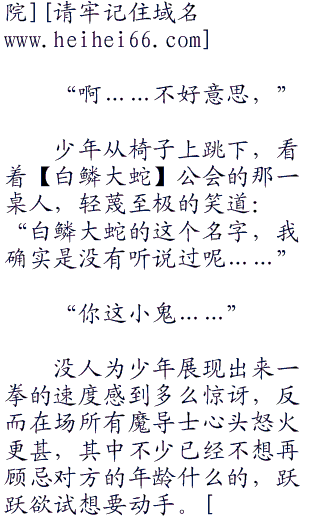 院][请牢记住域名
www.heihei66.com]
“啊……不好意思，”
少年从椅子上跳下，看
着【白鳞大蛇】公会的那一
桌人，轻蔑至极的笑道：
“白鳞大蛇的这个名字，我
确实是没有听说过呢……”
“你这小鬼……”
没人为少年展现出来一
拳的速度感到多么惊讶，反
而在场所有魔导士心头怒火
更甚，其中不少已经不想再
顾忌对方的年龄什么的，跃
跃欲试想要动手。[